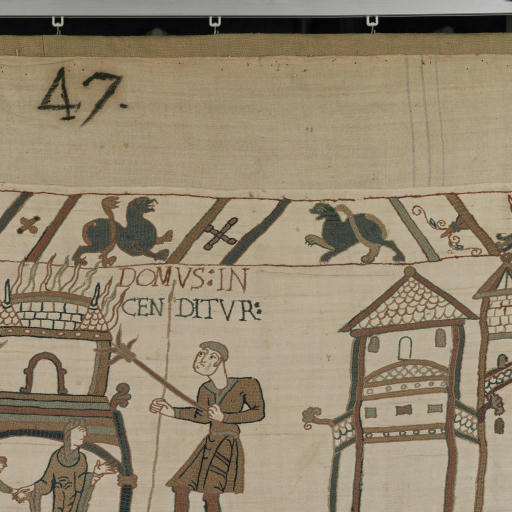 47.
DOMVS: IN
CENDITVR: